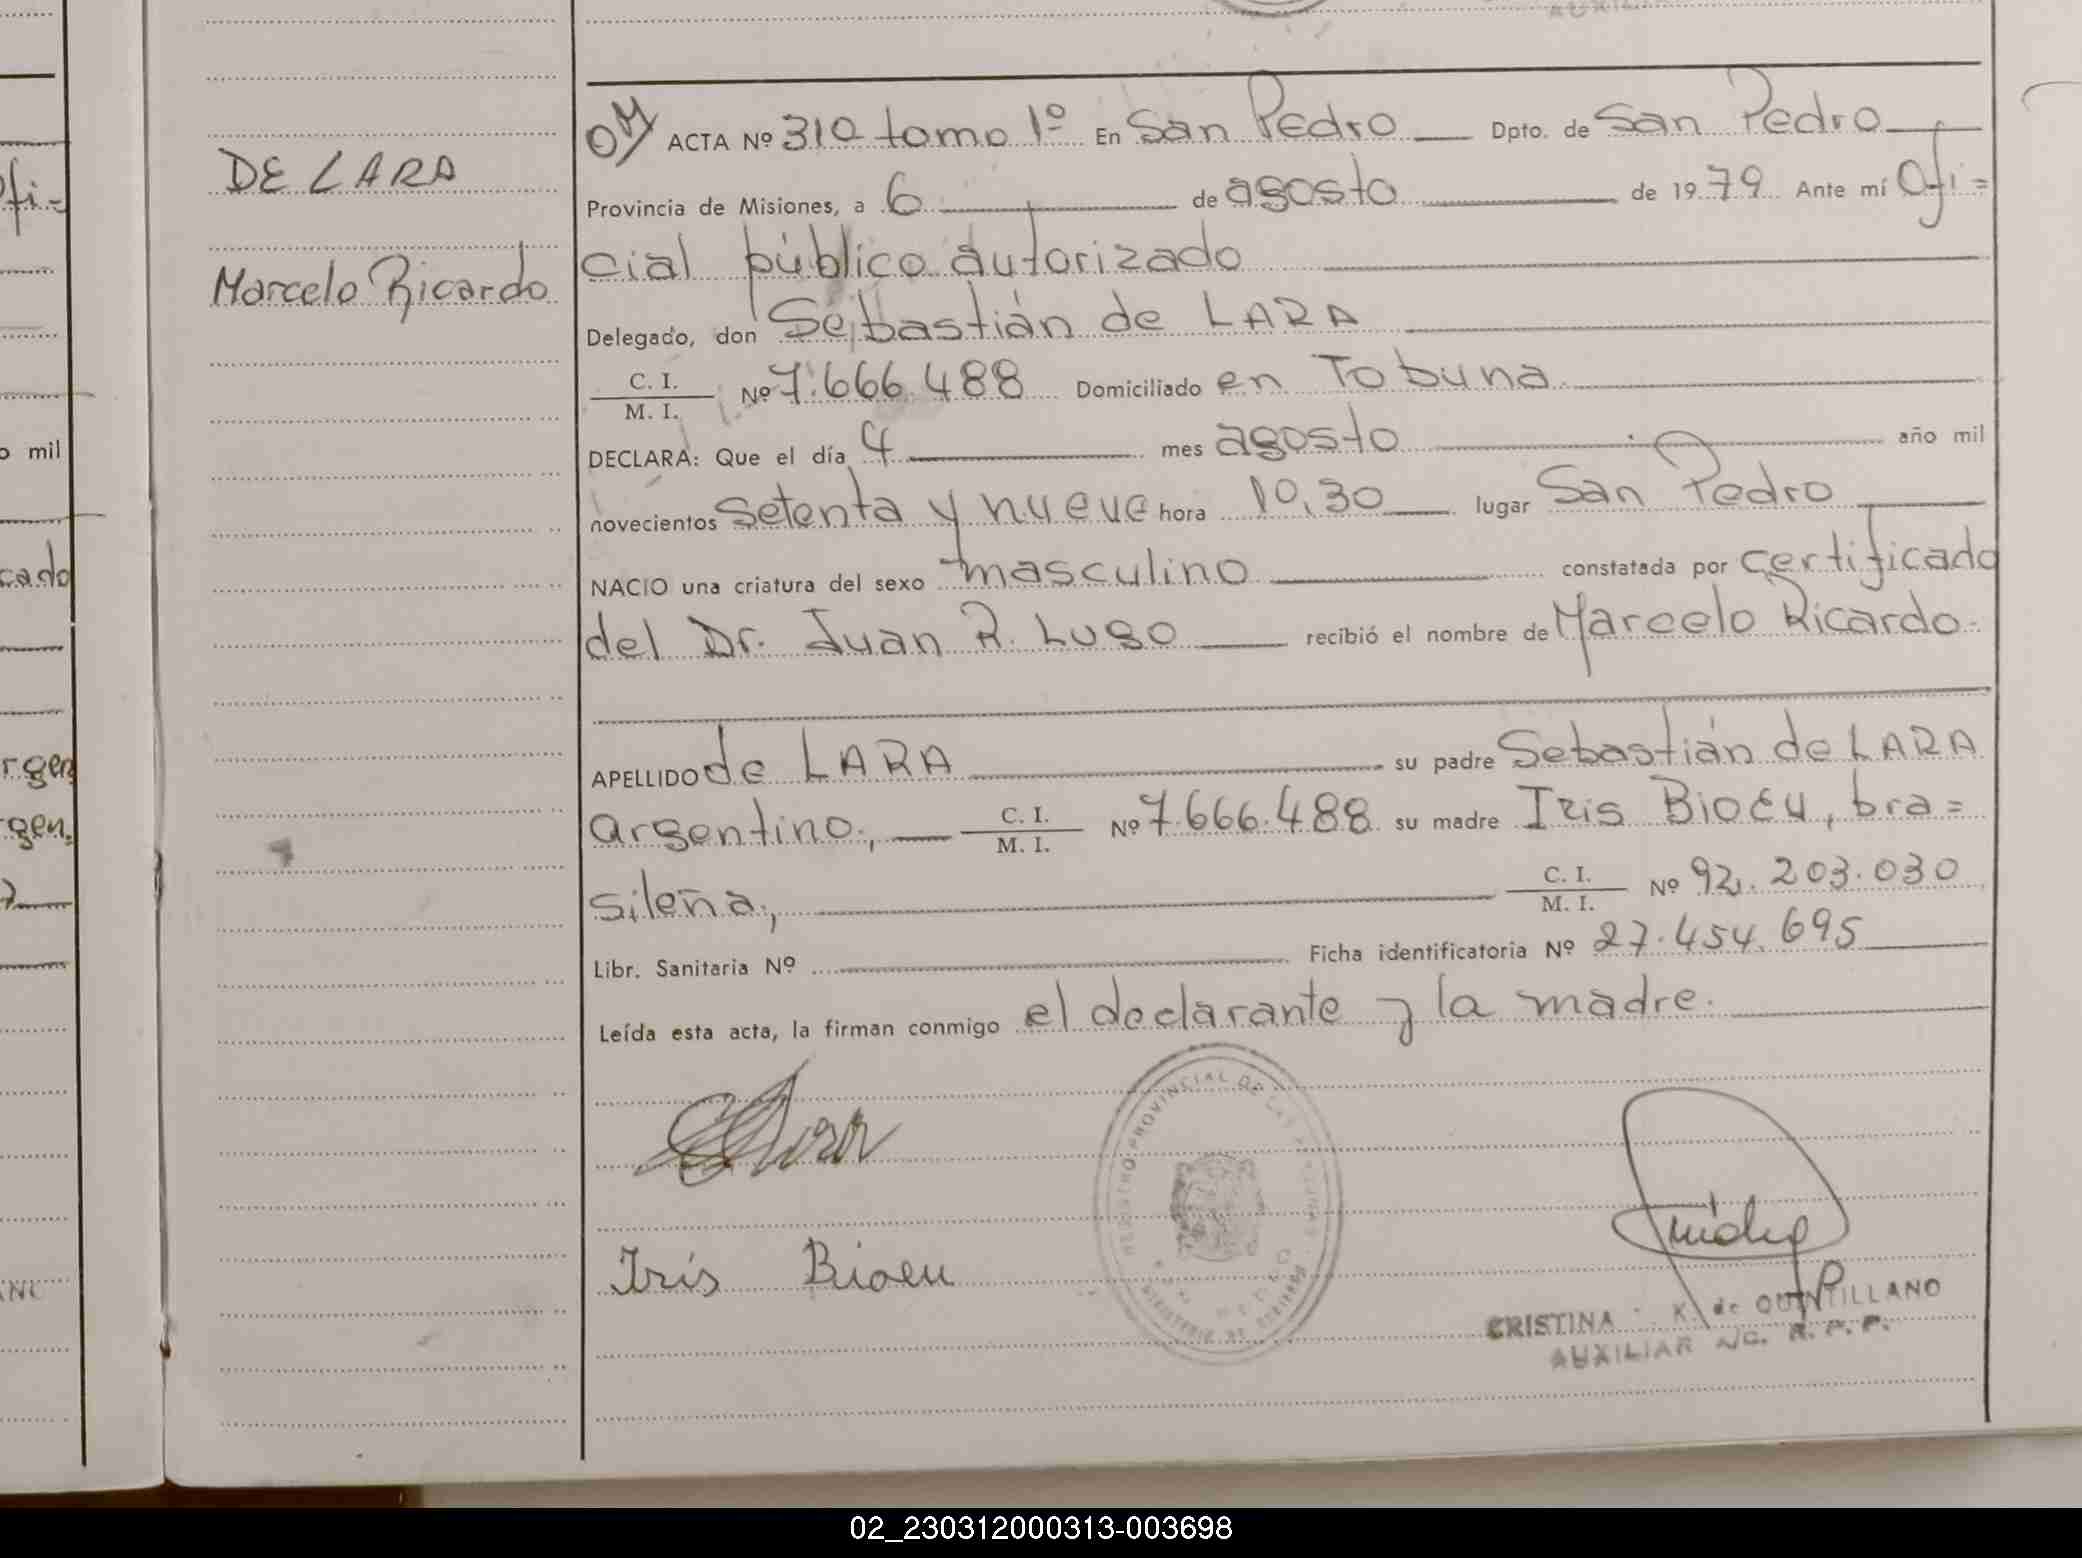 AUXILIA
DE LARA
Marcelo Ricardo
ACTA Nº 310 tomo 1º En San Pedro Dpto. de San Pedro
Provincia de Misiones, a 6 de agosto de 1979 Ante mí Ofi=
cial público autorizado
Delegado, don Sebastián de LARA
C. I.
M. I. Nº 7.666.488 Domiciliado en Tobuna
DECLARA: Que el día 4 mes agosto año mil
novecientos setenta y nueve hora 10,30 lugar San Pedro
NACIO una criatura del sexo masculino constatada por certificado
del Dr. Juan R. Lugo recibió el nombre de Marcelo Ricardo.
APELLIDO de LARA su padre Sebastián de LARA
argentino, C. I. M. I. Nº 7.666.488 su madre Iris Bioeu, bra=
sileña, C. I. M. I. Nº 92.203.030
Libr. Sanitaria Nº Ficha identificatoria Nº 27.454.695
Leída esta acta, la firman conmigo el declarante y la madre.
REGISTRO PROVINCIAL DE LAS PERSONAS
MINISTERIO DE GOBIERNO
Iris Bioeu
CRISTINA K. de QUINTILLANO
AUXILIAR A/C. R. P. P.
ofi=
o mil
cado
rgen
gen.
02_230312000313-003698